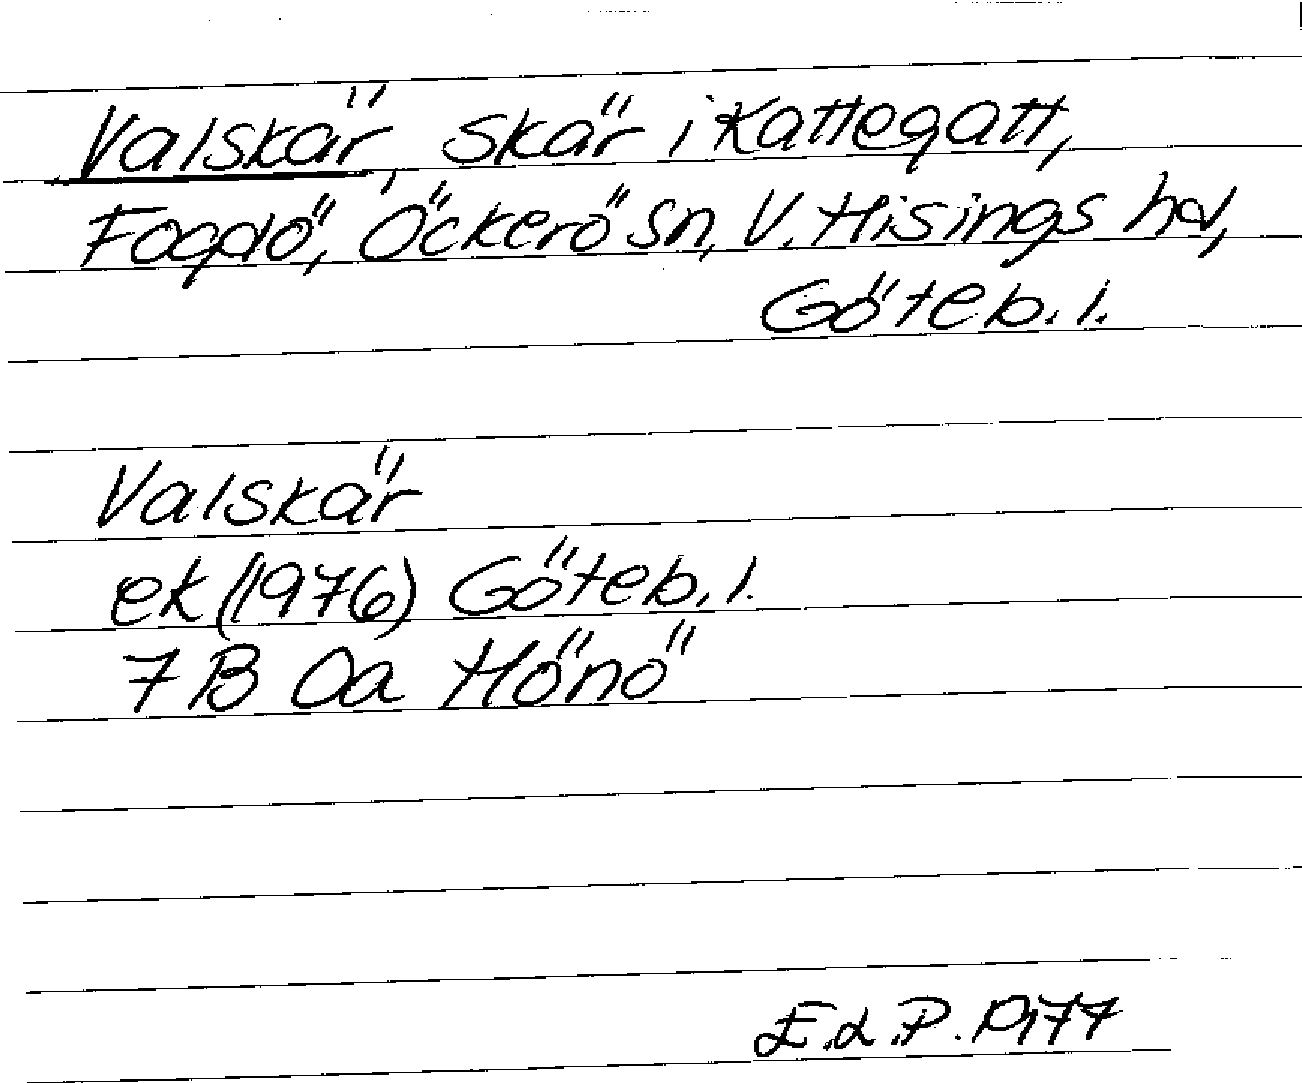 Valskär skär i Kattegatt,
Fogdö, Öckerö sn, V. Hisings hd,
Göteb. l.
Valskär
ek (1976) Göteb. l.
7B 0a Hönö
E.L.P. 1977